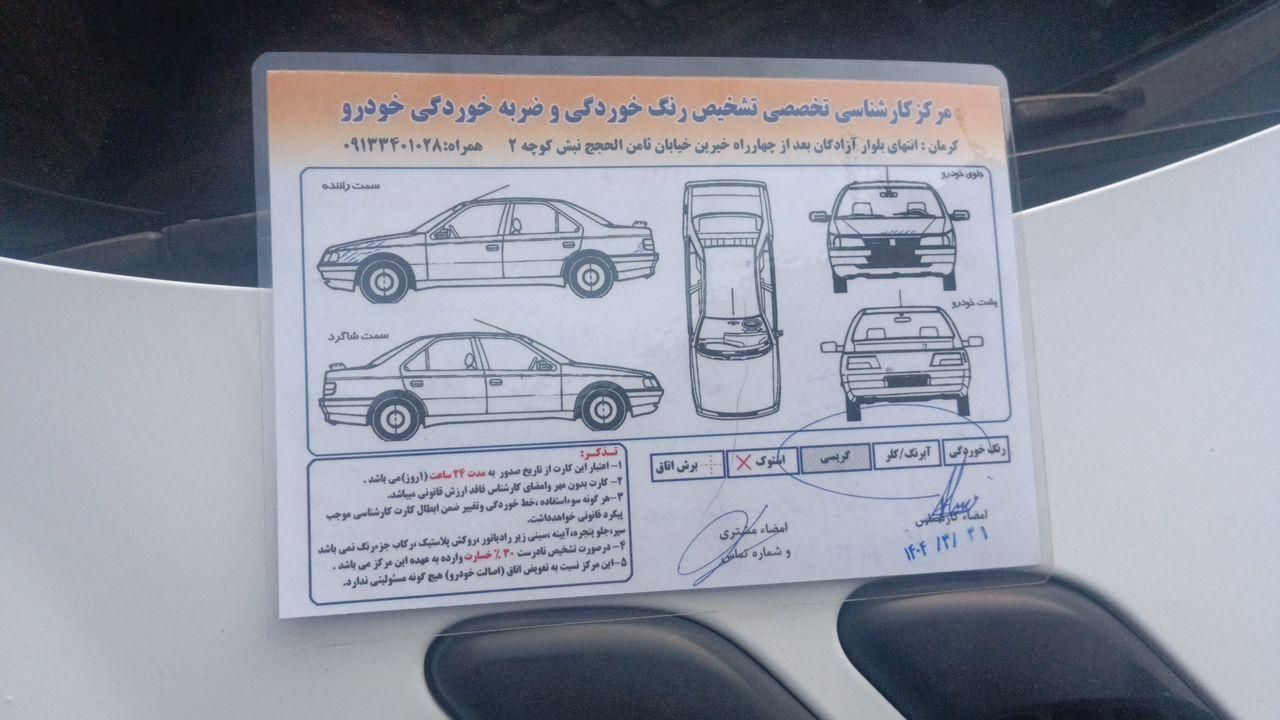 مرکز کارشناسی تخصصی تشخیص رنگ خوردگی و ضربه خوردگی خودرو
کرمان : انتهای بلوار آزادگان بعد از چهارراه خیرین خیابان ثامن الحجج نبش کوچه ۲ همراه:۰۹۱۳۳۴۰۱۰۲۸
سمت راننده
جلوی خودرو
پشت خودرو
سمت شاگرد
رنگ خوردگی
آبرنگ/کلر
گریسی
استوک
برش اتاق
تذکر:
۱- اعتبار این کارت از تاریخ صدور به مدت ۲۴ ساعت (۱روز)می باشد .
۲- کارت بدون مهر وامضای کارشناس فاقد ارزش قانونی میباشد.
۳-هر گونه سوءاستفاده ،خط خوردگی وتغییر ضمن ابطال کارت کارشناسی موجب
پیگرد قانونی خواهدداشت.
سپر،جلو پنجره،آیینه ،سینی زیر رادیاتور ،روکش پلاستیک ،رکاب جزءرنگ نمی باشد
۴- درصورت تشخیص نادرست ۳۰٪ خسارت وارده به عهده این مرکز می باشد .
۵-این مرکز نسبت به تعویض اتاق (اصالت خودرو) هیچ گونه مسئولیتی ندارد.
امضاء مشتری
و شماره تماس
امضاء کارشناس
۱۴۰۴/۳/۳۱